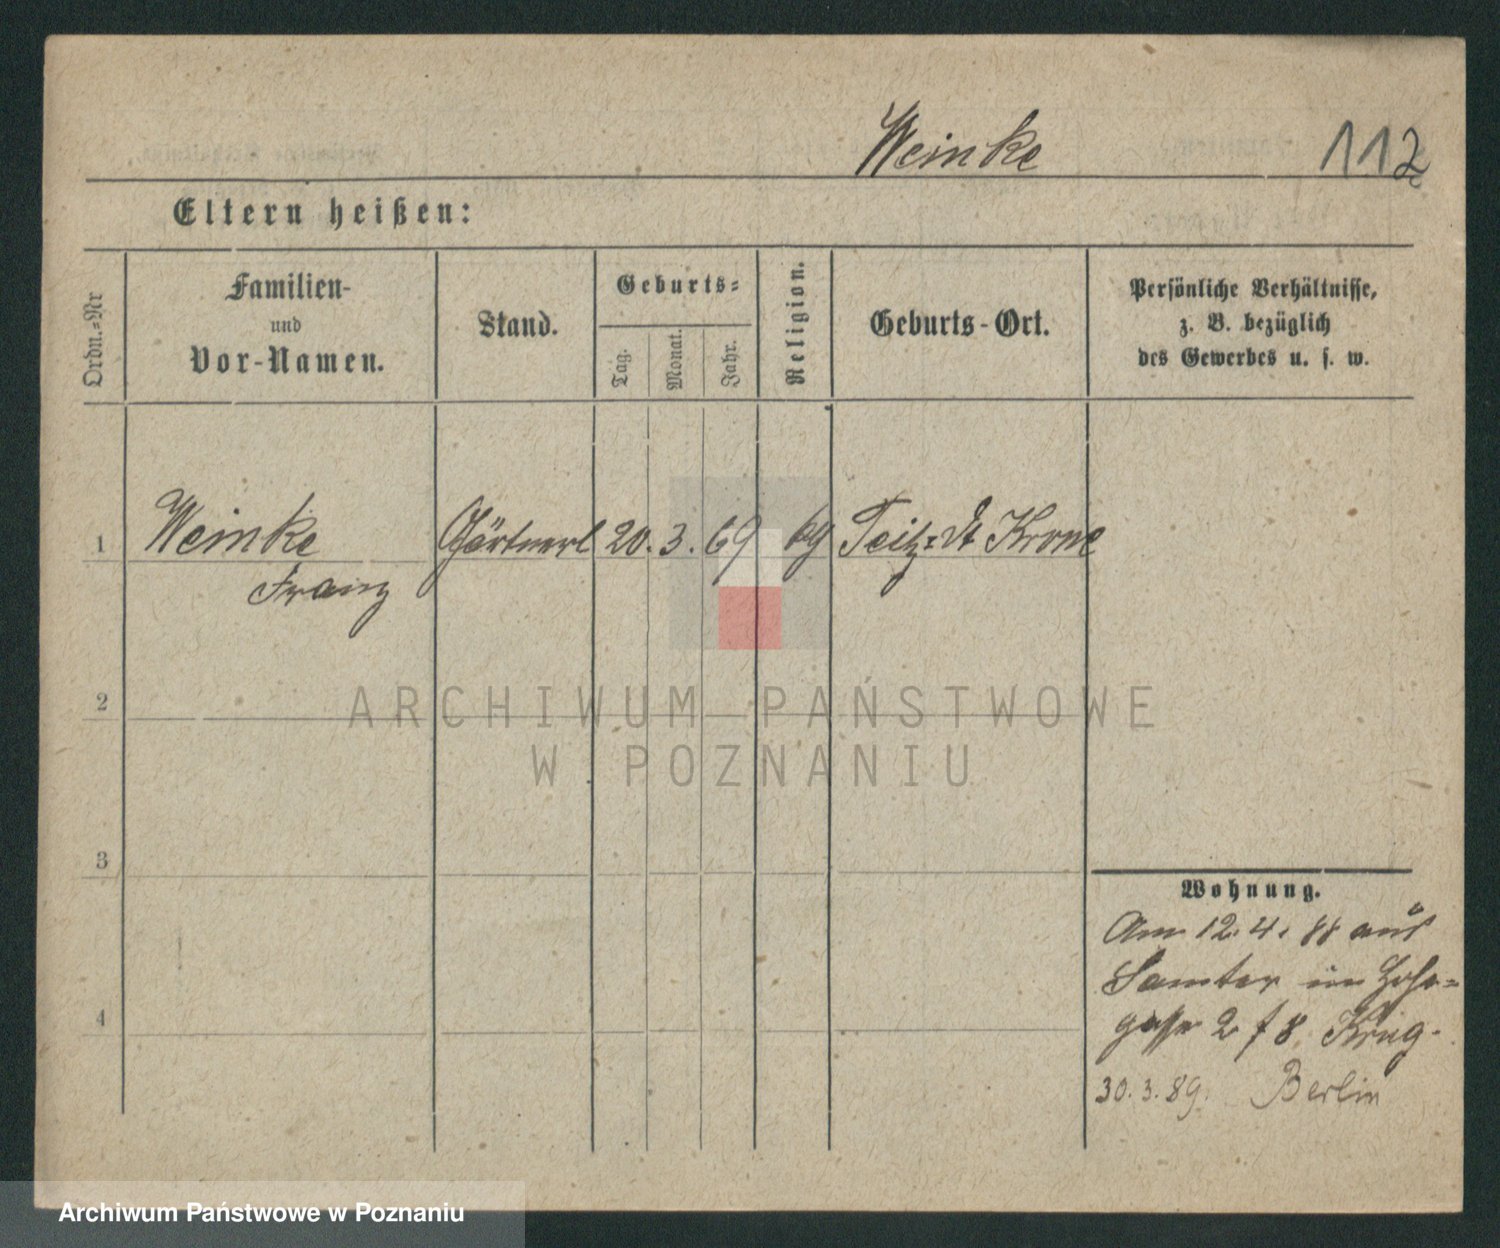 Weinke 112
Eltern heißen:
Ordn.=Nr
Familien-
und
Vor-Namen.
Stand.
Geburts=
Tag.
Monat.
Jahr.
Religion.
Geburts-Ort.
Persönliche Verhältnisse,
z. B. bezüglich
des Gewerbes u. s. w.
1 Weinke Gärtnerl 20. 3. 69 Krone
Franz
2
3
4
Wohnung.
Am 12. 4. 88 aus
Samter in
gasse 2 f 8 Krug.
30. 3. 89. Berlin
ARCHIWUM PAŃSTWOWE
W POZNANIU
Archiwum Państwowe w Poznaniu